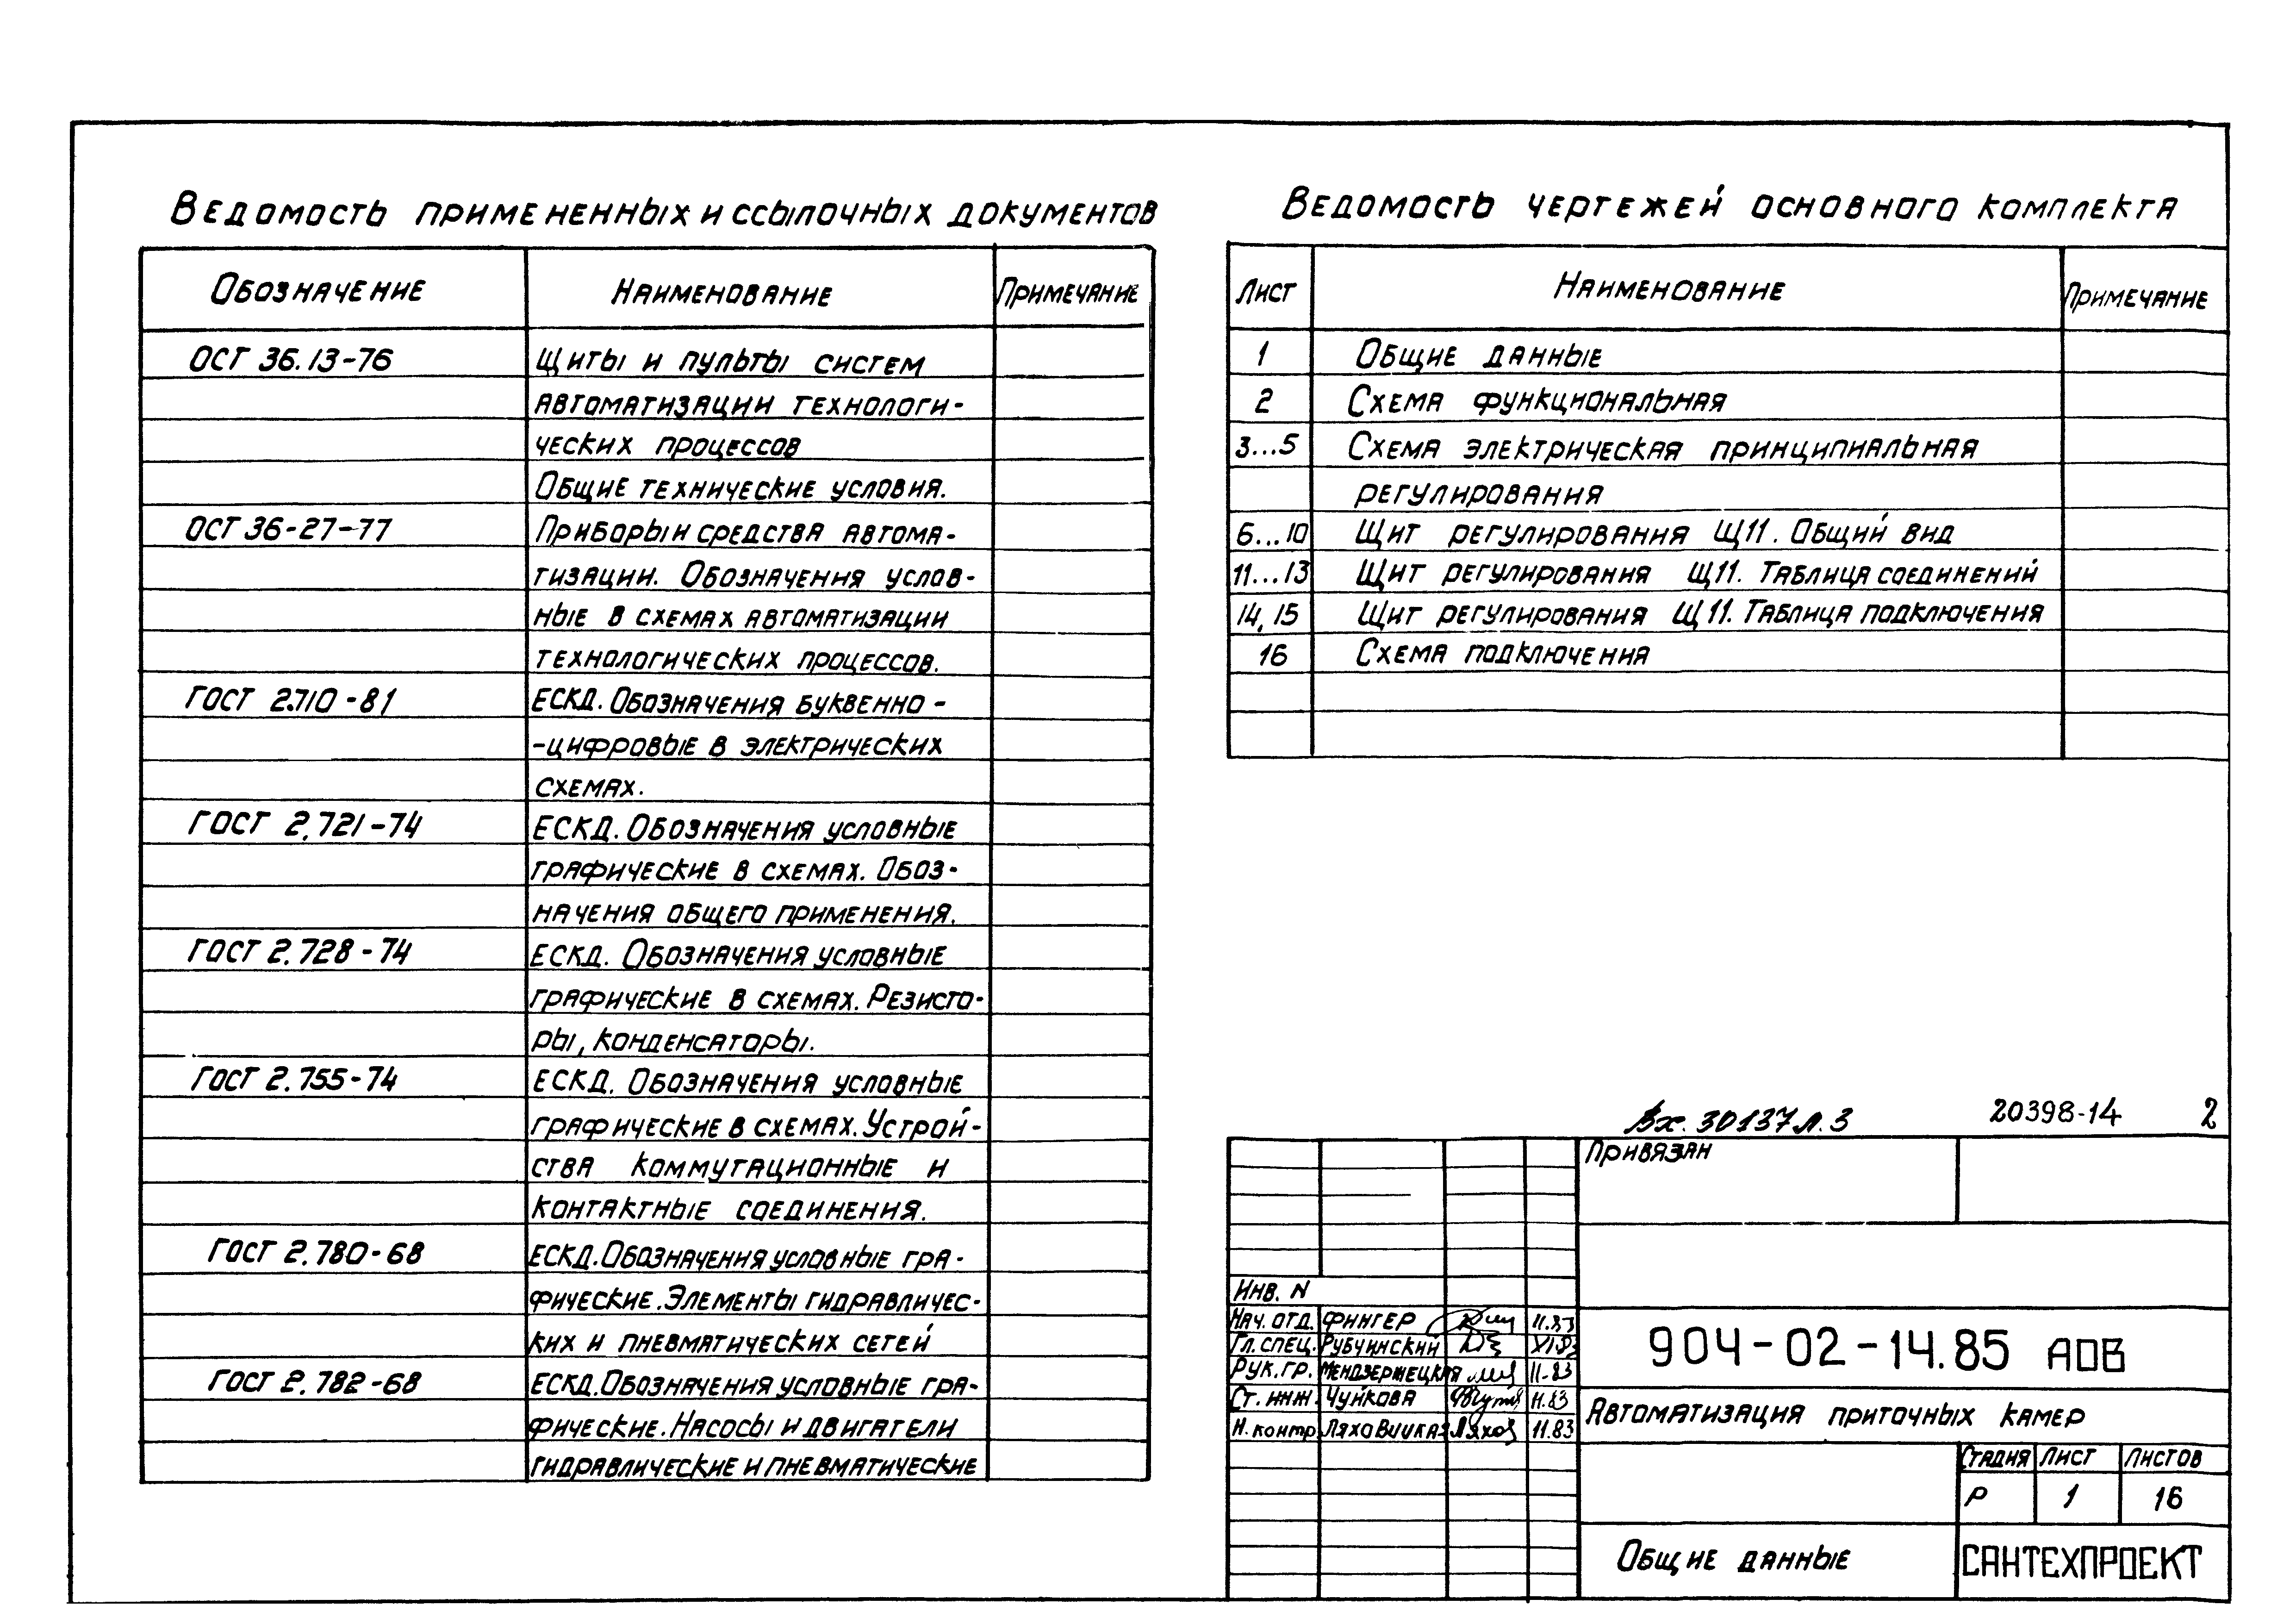 Ведомость примененных и ссылочных документов
Обозначение Наименование Примечание
ОСТ 36.13-76 Щиты и пульты систем
автоматизации технологи-
ческих процессов
Общие технические условия.
ОСТ 36-27-77 Приборы и средства автома-
тизации. Обозначения услов-
ные в схемах автоматизации
технологических процессов.
ГОСТ 2.710-81 ЕСКД. Обозначения буквенно-
-цифровые в электрических
схемах.
ГОСТ 2.721-74 ЕСКД. Обозначения условные
графические в схемах. Обоз-
начения общего применения.
ГОСТ 2.728-74 ЕСКД. Обозначения условные
графические в схемах. Резисто-
ры, конденсаторы.
ГОСТ 2.755-74 ЕСКД. Обозначения условные
графические в схемах. Устрой-
ства коммутационные и
контактные соединения.
ГОСТ 2.780-68 ЕСКД. Обозначения условные гра-
фические. Элементы гидравличес-
ких и пневматических сетей
ГОСТ 2.782-68 ЕСКД. Обозначения условные гра-
фические. Насосы и двигатели
гидравлические и пневматические
Ведомость чертежей основного комплекта
Лист Наименование Примечание
1 Общие данные
2 Схема функциональная
3...5 Схема электрическая принципиальная
регулирования
6...10 Щит регулирования Щ11. Общий вид
11...13 Щит регулирования Щ11. Таблица соединений
14,15 Щит регулирования Щ11. Таблица подключения
16 Схема подключения
Вх. 30137 л. 3 20398-14 2
Привязан
Инв. N
Нач. отд. Фингер 11.83
Гл. спец. Рубчинский
Рук. гр. Мендзержецкая 11-83
Ст. инж. Чуйкова 11.83
Н. контр. 11.83
904-02-14.85 АОВ
Автоматизация приточных камер
Стадия Лист Листов
Р 1 16
Общие данные
САНТЕХПРОЕКТ